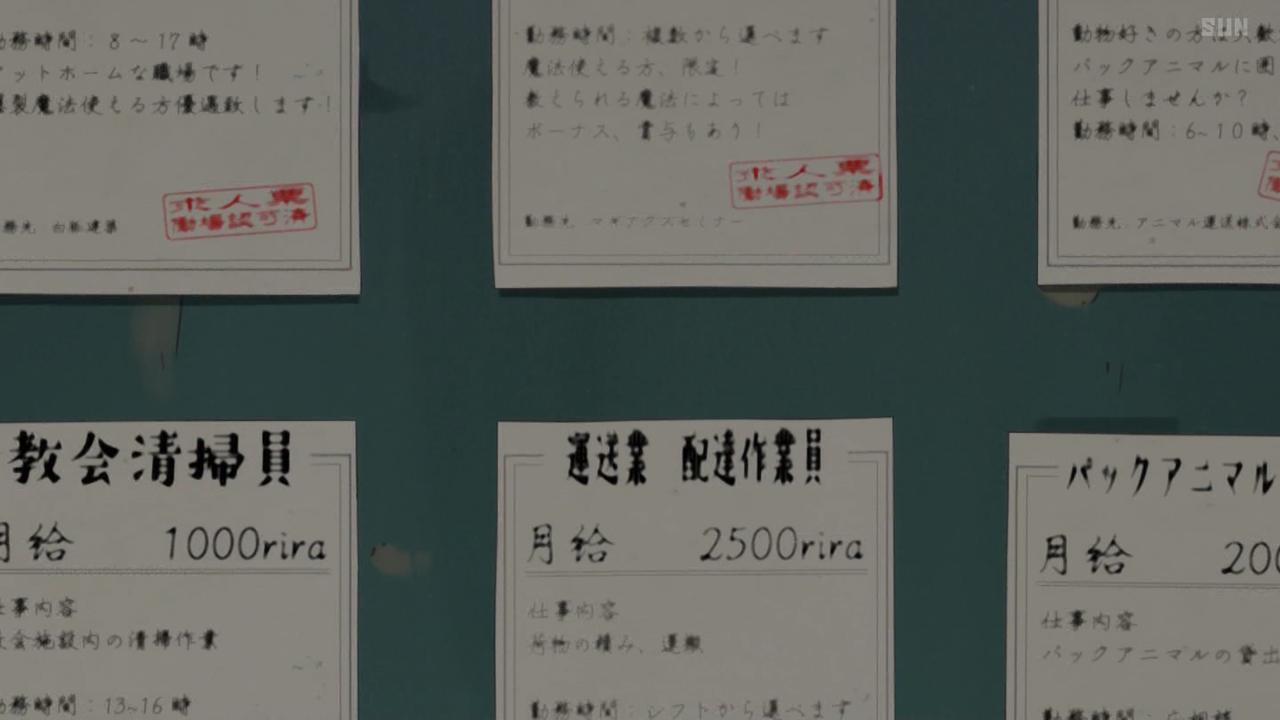 SUN
務時間：8～17時
ットホームな職場です！
裂魔法使える方優遇致します！
求人票
働場認可済
務先 白板建築
勤務時間：複数から選べます
魔法使える方、限定！
教えられる魔法によっては
ボーナス、賞与もあり！
求人票
働場認可済
勤務先 マギアクスセミナー
動物好きの方は大歓
パックアニマルに囲
仕事しませんか？
勤務時間：6~10時、
勤務先 アニマル運送株式会
教会清掃員
月給 1000rira
仕事内容
会施設内の清掃作業
務時間：13~16時
運送業 配達作業員
月給 2500rira
仕事内容
荷物の積み、運搬
勤務時間：シフトから選べます
パックアニマル
月給 200
仕事内容
パックアニマルの貸出
勤務時間：